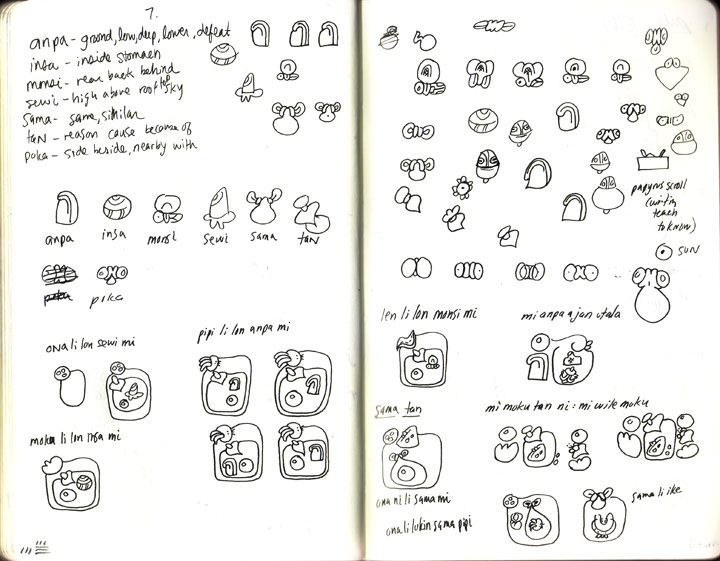 7.
anpa - ground, low, deep, lower, defeat
insa - inside stomach
monsi - rear back behind
sewi - high above roof sky
sama - same, similar
tan - reason cause because of
poka - side beside, nearby with
anpa insa monsi sewi sama tan
poka poka
ona li lon sewi mi
pipi li lon anpa mi
moku li lon insa mi
papyrus scroll
(writing
teach
to know)
SUN
len li lon monsi mi
mi anpa e jan utala
sama tan
mi moku tan ni: mi wile moku
ona ni li sama mi
ona li lukin sama pipi
sama li ike